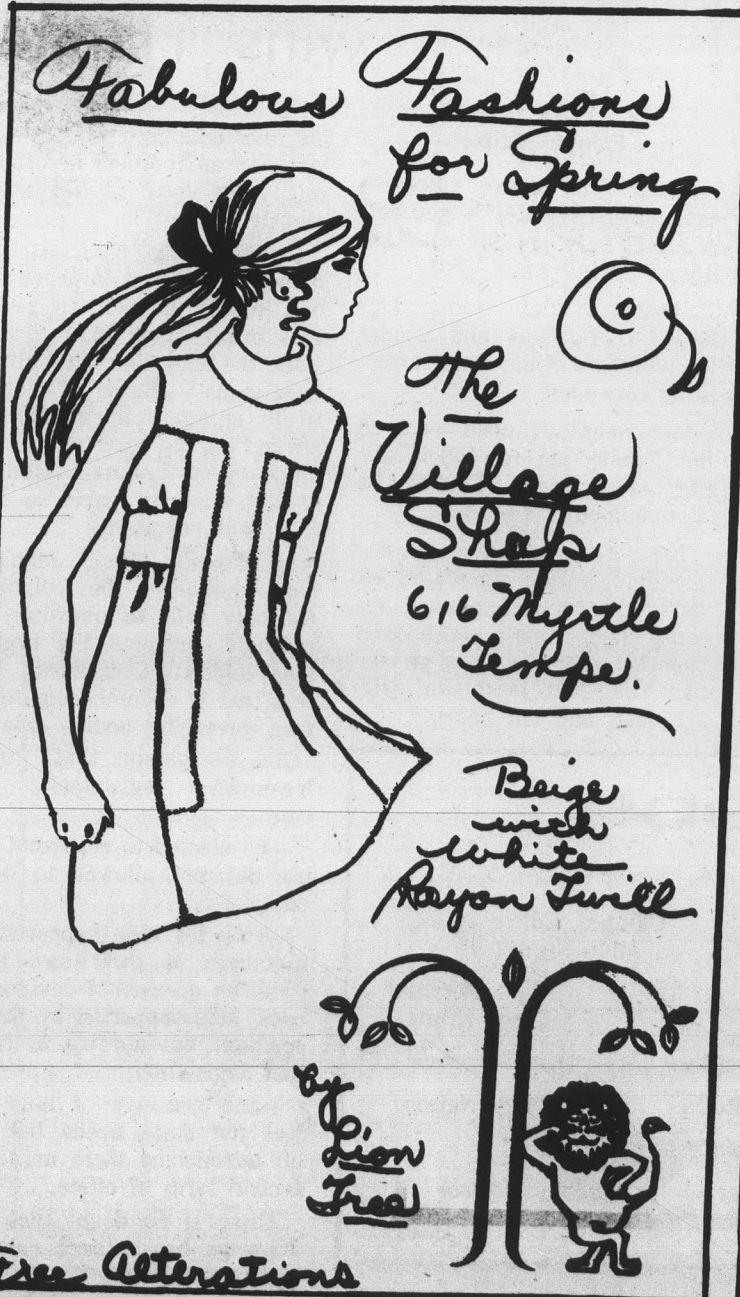 Fabulous Fashions
for Spring
The
Village
Shop
616 Myrtle
Tempe.
Beige
with
White
Rayon Twill
by
Lion
Tree
Free Alterations